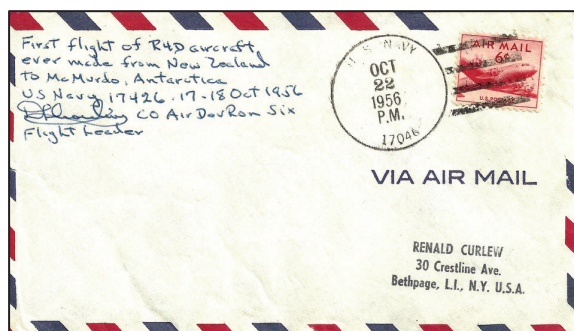 First flight of R4D aircraft
ever made from New Zealand
to McMurdo, Antarctica
US Navy 17426. 17-18 Oct 1956
CO AirDevRon Six
Flight Leader
U.S. NAVY
OCT
22
1956
P.M.
17046
AIR MAIL
6¢
VIA AIR MAIL
RENALD CURLEW
30 Crestline Ave.
Bethpage, L.I., N.Y. U.S.A.